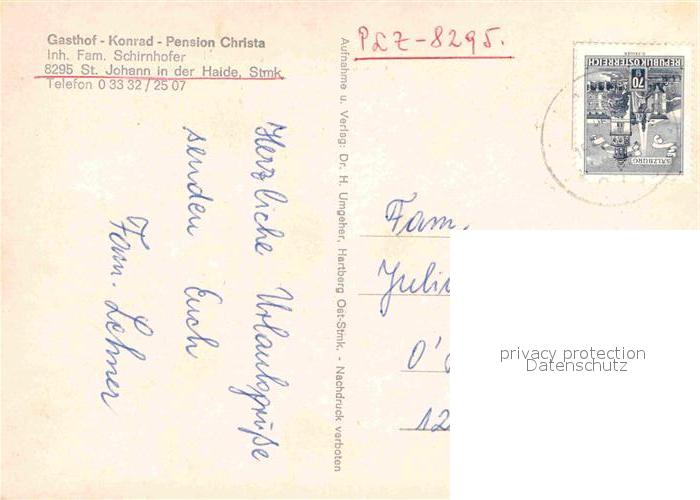 Gasthof - Konrad - Pension Christa
Inh. Fam. Schirnhofer
8295 St. Johann in der Haide, Stmk
Telefon 0 33 32 / 25 07
PLZ-8295.
Herzliche Urlaubsgrüße
senden Euch
Fam. Lehner
Aufnahme u. Verlag: Dr. H. Umgeher, Hartberg Ost-Stmk. - Nachdruck verboten
REPUBLIK ÖSTERREICH
70
SALZBURG
Fam.
O'
12
privacy protection
Datenschutz